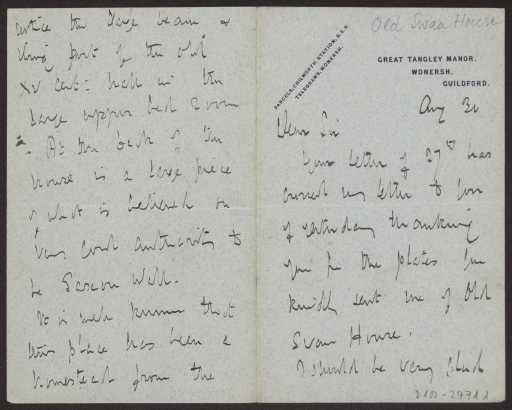 Old Swan House
PARCELS, CHILWORTH STATION, S.E.R.
TELEGRAMS, WONERSH.
GREAT TANGLEY MANOR,
WONERSH,
GUILDFORD.
Aug 30
Dear Sir
Your letter of 29th has
crossed my letter to you
of yesterday thanking
you for the plates you
kindly sent me of Old
Swan House.
I should be very glad
notice the large beam &
King post of the old
XV cent: hall in the
large upper bed room
- At the back of the
house is a large piece
of what is believed on
very good authority to
be Saxon Wall.
It is well known that
this place has been a
homestead from the